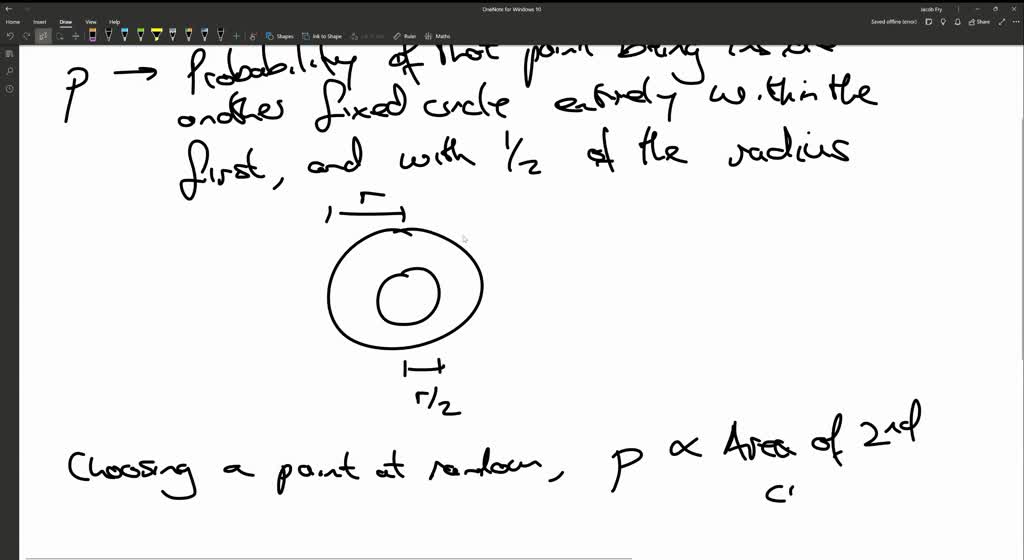 OneNote for Windows 10
Jacob Fry
Home Insert Draw View Help
Saved offline (error)
Share
Shapes Ink to Shape Ruler Maths
Probability of that point being inside
P → another fixed circle entirely within the
first, and with 1/2 of the radius
r
r/2
Choosing a point at random, P ∝ Area of 2nd
ci